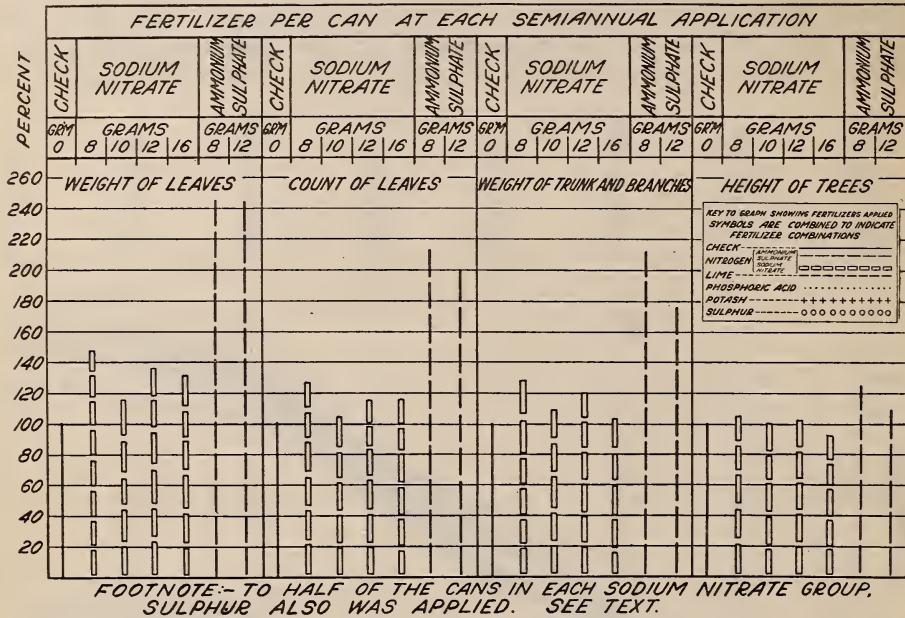 FERTILIZER PER CAN AT EACH SEMIANNUAL APPLICATION
PERCENT
CHECK SODIUM NITRATE AMMONIUM SULPHATE CHECK SODIUM NITRATE AMMONIUM SULPHATE CHECK SODIUM NITRATE AMMONIUM SULPHATE CHECK SODIUM NITRATE AMMONIUM SULPHATE
GR'M GRAMS GRAMS GR'M GRAMS GRAMS GR'M GRAMS GRAMS GR'M GRAMS GRAMS
0 8 10 12 16 8 12 0 8 10 12 16 8 12 0 8 10 12 16 8 12 0 8 10 12 16 8 12
WEIGHT OF LEAVES COUNT OF LEAVES WEIGHT OF TRUNK AND BRANCHES HEIGHT OF TREES
260
240
220
200
180
160
140
120
100
80
60
40
20
KEY TO GRAPH SHOWING FERTILIZERS APPLIED
SYMBOLS ARE COMBINED TO INDICATE
FERTILIZER COMBINATIONS
CHECK
NITROGEN AMMONIUM SULPHATE SODIUM NITRATE
LIME
PHOSPHORIC ACID
POTASH
SULPHUR
FOOTNOTE:- TO HALF OF THE CANS IN EACH SODIUM NITRATE GROUP,
SULPHUR ALSO WAS APPLIED. SEE TEXT.